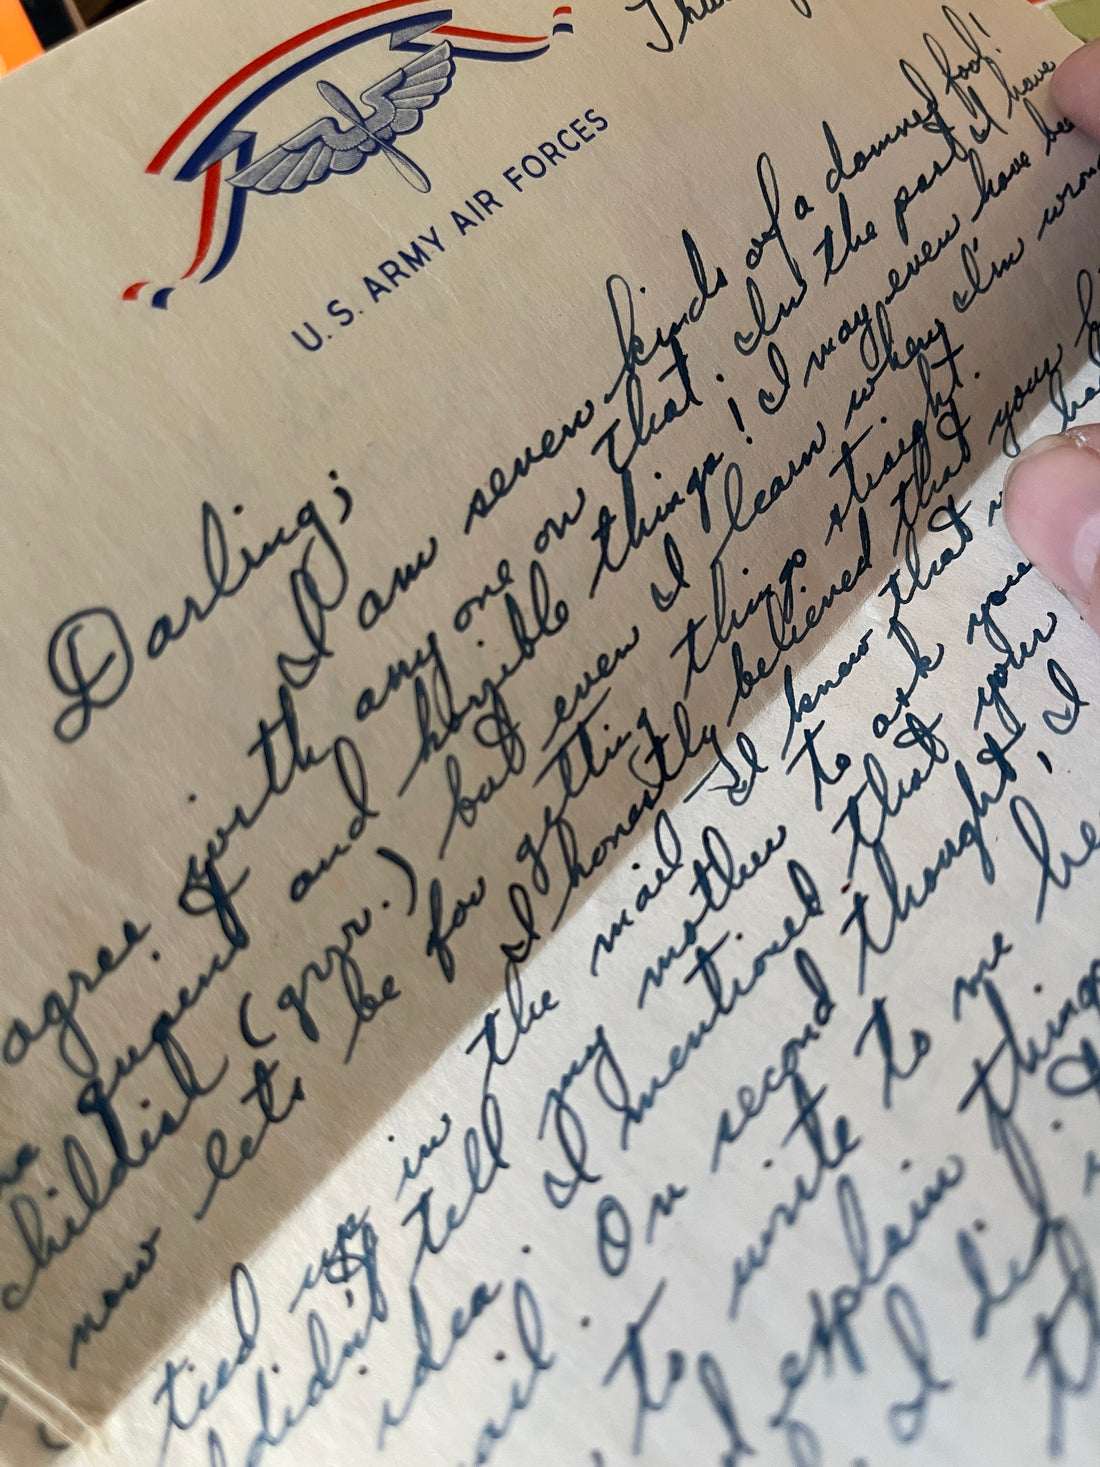 U.S. ARMY AIR FORCES
Darling;
I am seven kinds of a damned fool!
agree any one on that. In the past I have
and horrible things! I may even have
childish (grrr.) but even I learn when I'm
now lets be for getting things straight.
I honestly believed that your
tied up in the mail I knew that
didn't tell my mother to ask you
idea. I mentioned that your
On second thought, I
to write to me
explain things
I did